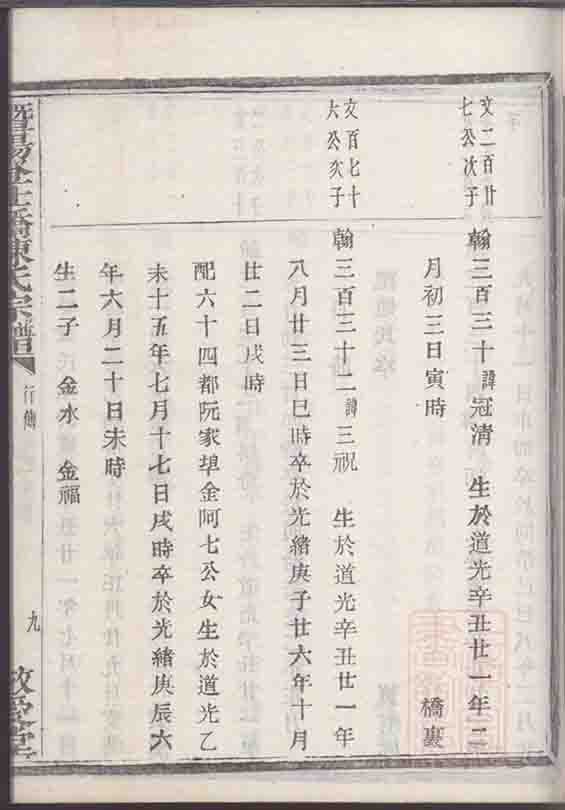 文二百廿
七公次子
翰三百三十諱冠清 生於道光辛丑廿一年二
月初三日寅時 橋裏
文百七十
六公次子
翰三百三十二諱三祝 生於道光辛丑廿一年
八月廿三日巳時卒於光緒庚子廿六年十月
廿二日戌時
配六十四都阮家埠金阿七公女生於道光乙
未十五年七月十七日戌時卒於光緒庚辰六
年六月二十日未時
生二子 金水 金福
暨陽 陳氏宗譜
行傳
九
敬愛堂